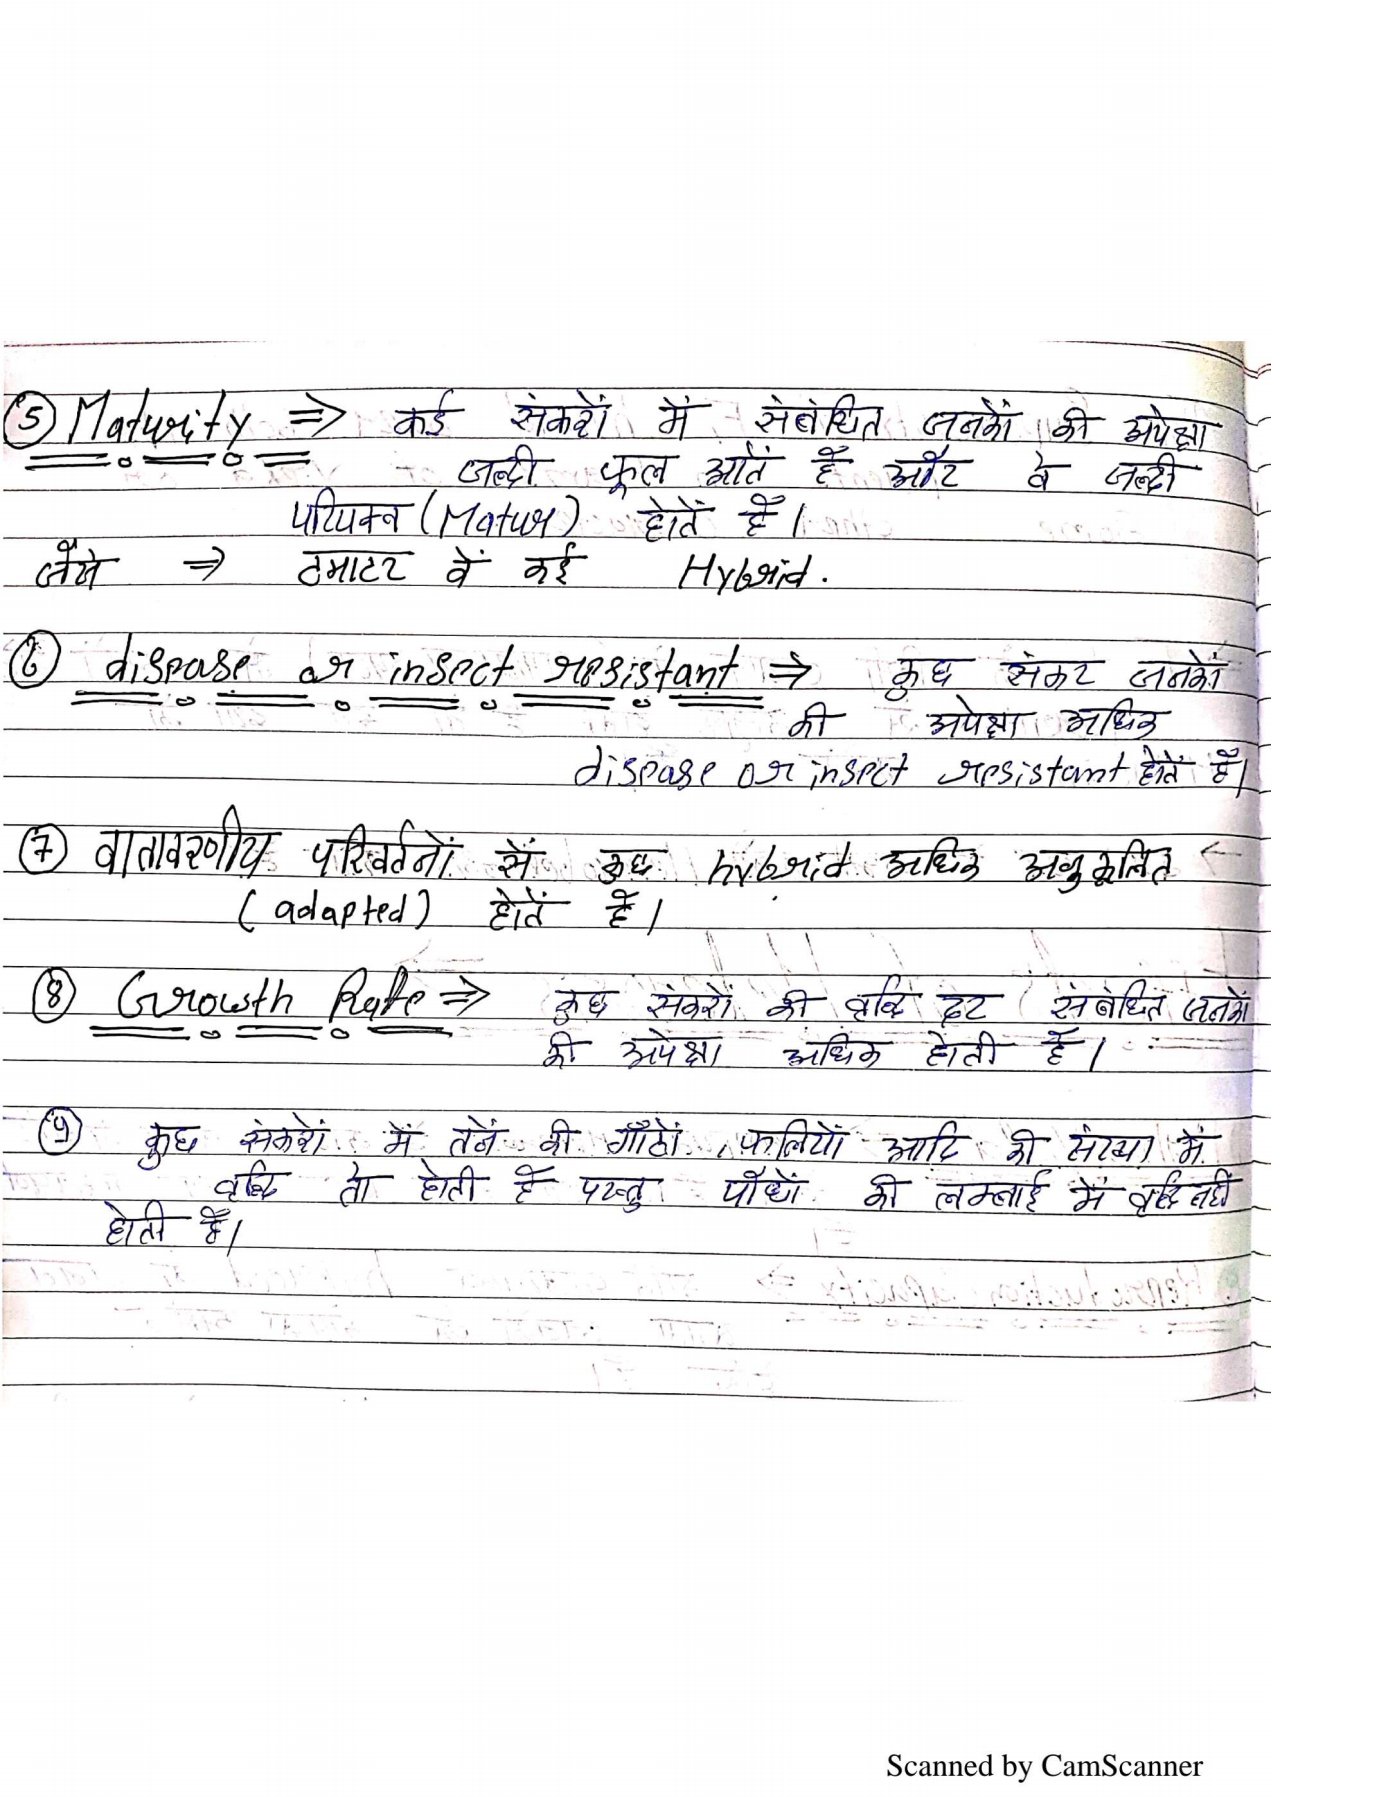 ⑤ Maturity ⇒ कई संकरों में संबंधित जनकों की अपेक्षा
जल्दी फूल आतें हैं और वे जल्दी
परिपक्व (Matur) होतें हैं।
जैसे ⇒ टमाटर वें कई Hybrid.
⑥ disease or insect resistant ⇒ कुछ संकर जनकों
की अपेक्षा अधिक
disease or insect resistant होतें हैं।
⑦ वातावरणीय परिवर्तनों सें कुछ hybrid अधिक अनुकूलित ←
(adapted) होतें हैं।
⑧ Growth Rate ⇒ कुछ संकरों की वृद्धि दर संबंधित जनकों
की अपेक्षा अधिक होती हैं।
⑨ कुछ संकरों में तनें की गाँठों, फलियों आदि की संख्या में
वृद्धि तो होती हैं परन्तु पौधों की लम्बाई में वृद्धि नहीं
होती हैं।
Scanned by CamScanner